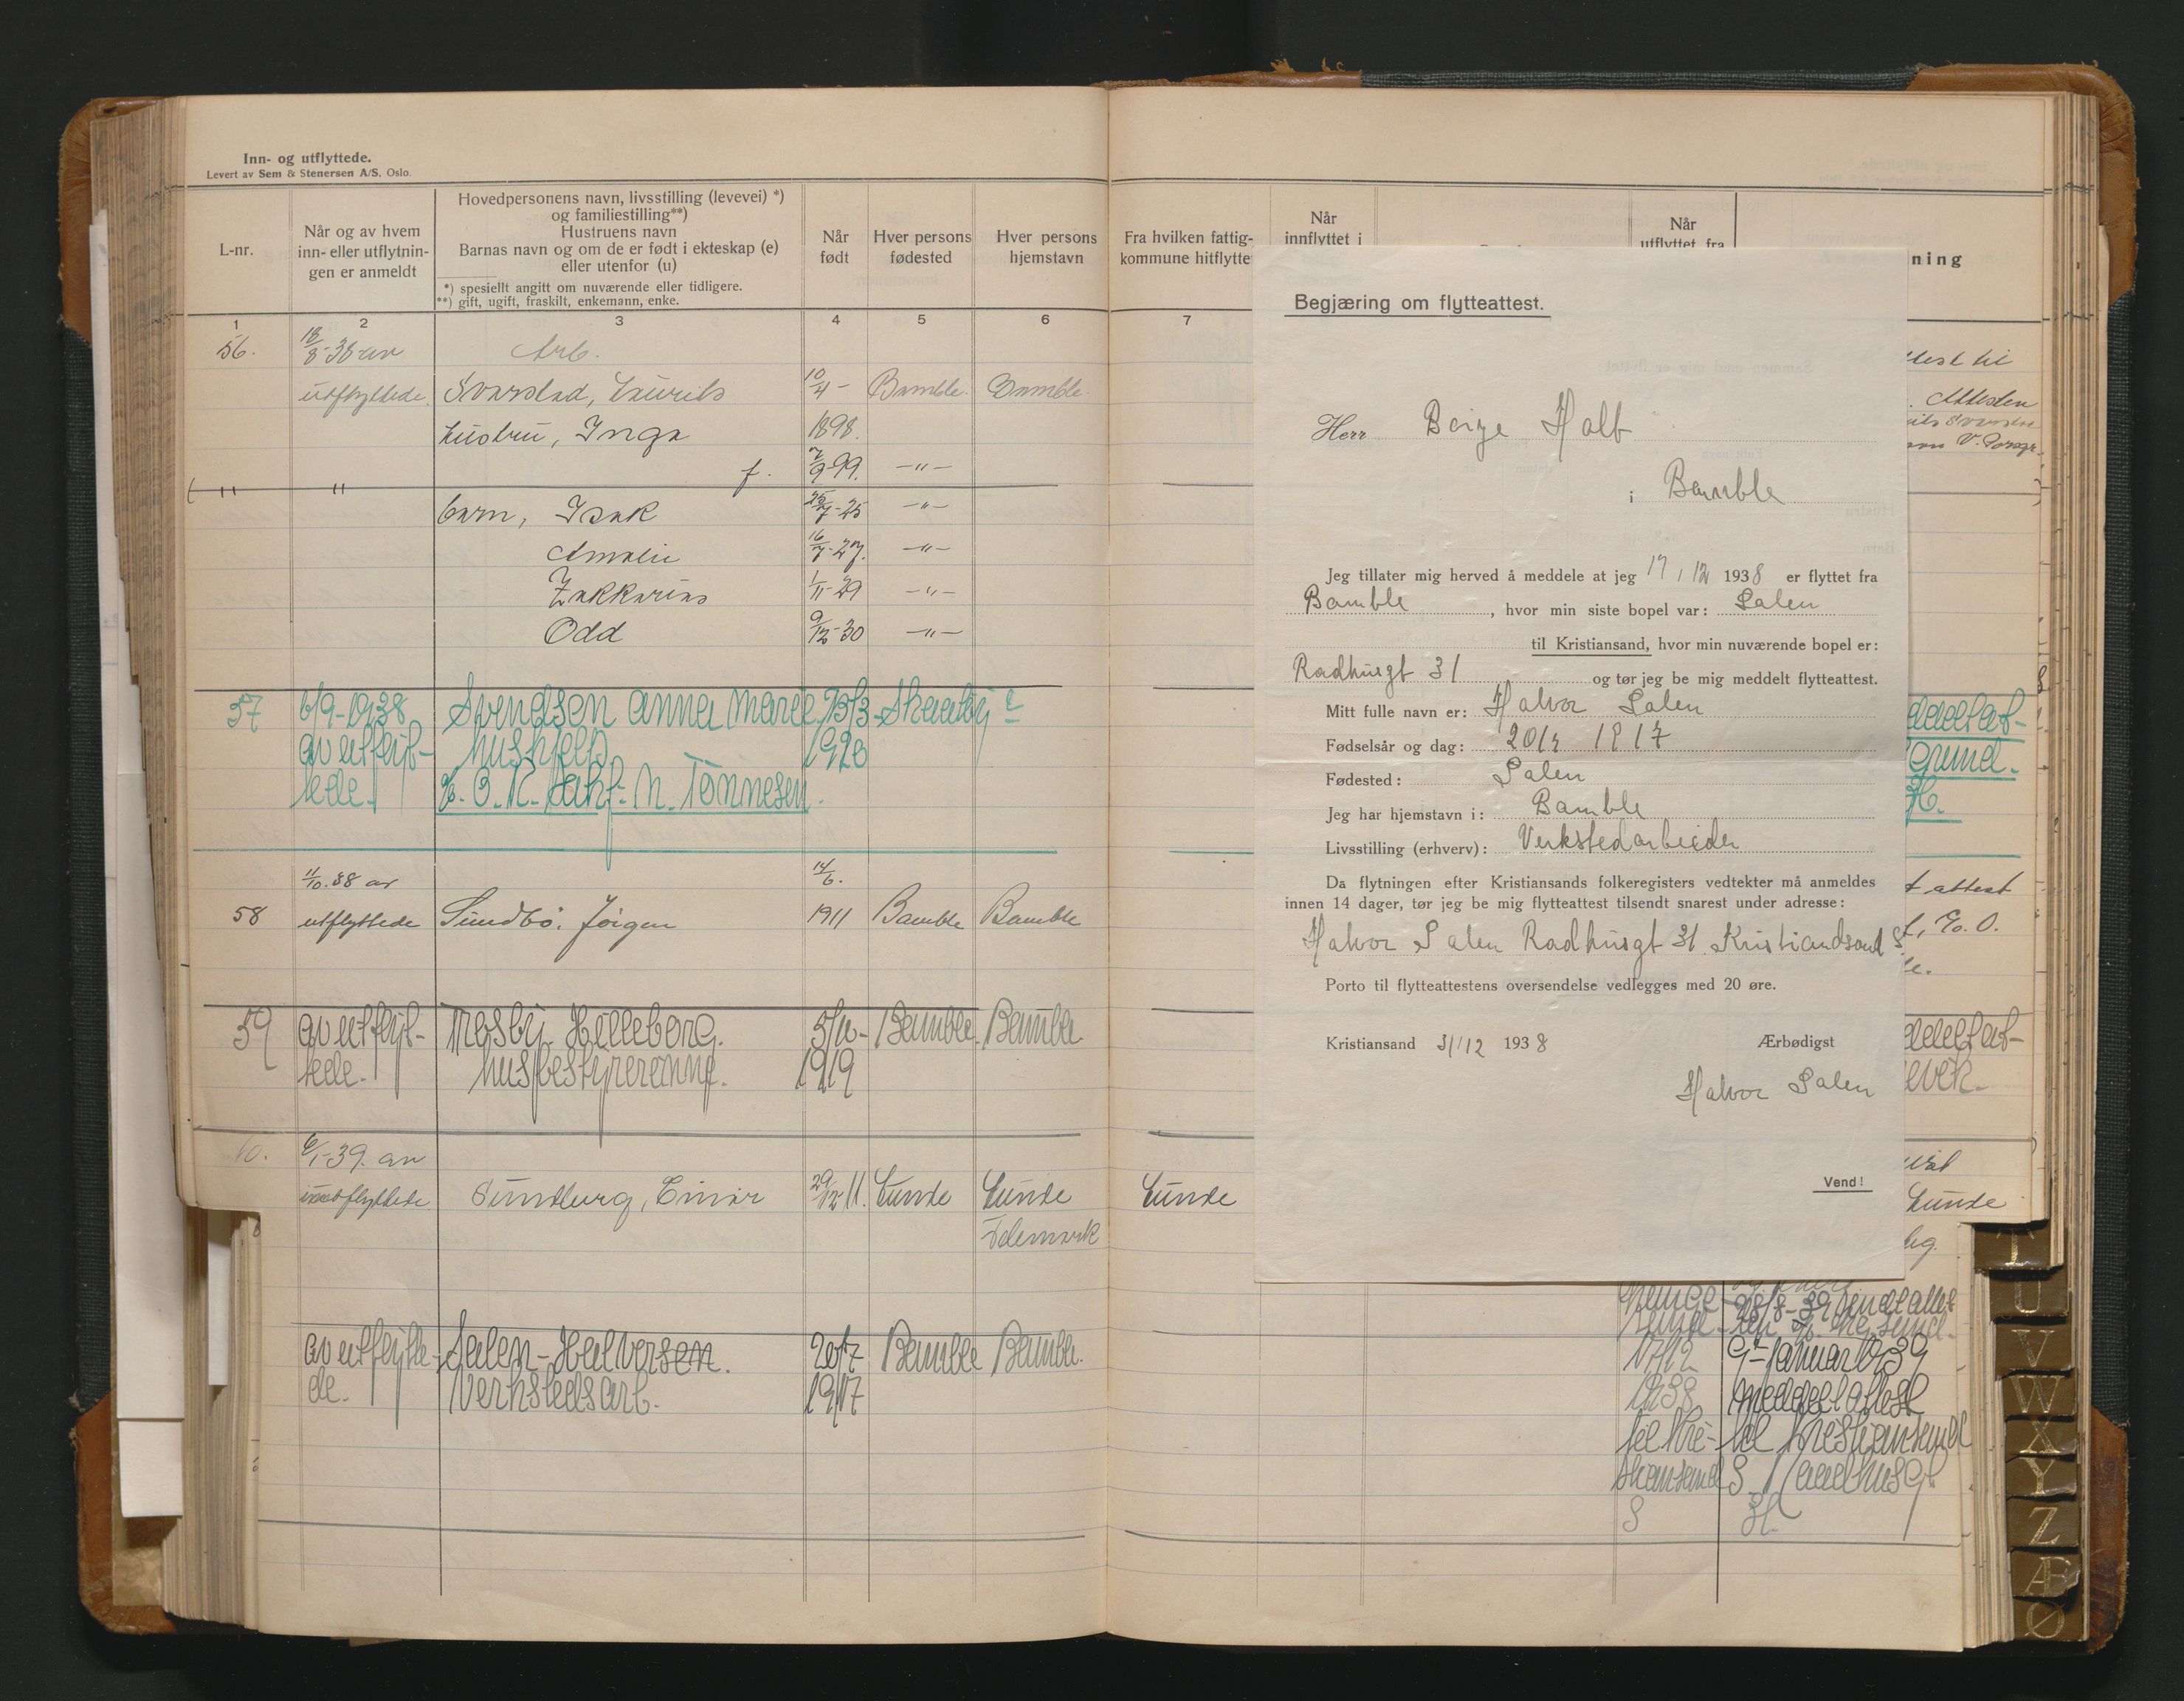 Inn- og utflyttede.
Levert av Sem & Stenersen A/S, Oslo.
L-nr.
Når og av hvem
inn- eller utflytnin-
gen er anmeldt
Hovedpersonens navn, livsstilling (levevei) *)
og familiestilling**)
Hustruens navn
Barnas navn og om de er født i ekteskap (e)
eller utenfor (u)
*) spesielt angitt om nuværende eller tidligere.
**) gift, ugift, fraskilt, enkemann, enke.
Når
født
Hver persons
fødested
Hver persons
hjemstavn
Fra hvilken fattig-
kommune hitflytte
Når
innflyttet i
Når
utflyttet fra
ning
1 2 3 4 5 6 7
56. 18/8-38 av Arb.
utflyttede. Svarstad, Laurits 10/4- Bamble. Bamble.
hustru, Inga 1898.
f. 7/9-99. -"-
" "
barn, Isak 25/7-25 -"-
Amalie 16/7-27. -"-
Zakkarias 1/11-29 -"-
Odd 9/12-30 -"-
57 6/9-1938 Svendsen Anna Marie 13/3- Skaatøy
av utflyt- hushjelp 1920
tede. N. Tønnesen.
11/10.38 av 14/6.
58 utflyttede Sundbø, Jørgen 1911 Bamble Bamble
59 av utflyt- Bamble. Bamble.
tede. husbestyrerinne. 1919
6/1-39. av
utflyttede. Sundberg, Einar 29/12 11. Lunde Lunde Lunde
Telemark
av utflytte- Salen - Halvorsen. 20/7 Bamble Bamble.
de. Verkstedsarb. 1917
attest til
Attesten
attest
Lunde
17/12 9- januar 1939
1938 meddelt attest
til Kri- til Kristiansand
stiansand S. Raadhusgt.
S 31.
Begjæring om flytteattest.
Herr Børge Holt
i Bamble
Jeg tillater mig herved å meddele at jeg 17 / 12 1938 er flyttet fra
Bamble, hvor min siste bopel var: Salen
til Kristiansand, hvor min nuværende bopel er:
Radhusgt 31 og tør jeg be mig meddelt flytteattest.
Mitt fulle navn er: Halvor Salen
Fødselsår og dag: 20/7 1917
Fødested: Salen
Jeg har hjemstavn i: Bamble
Livsstilling (erhverv): Verkstedarbeider
Da flytningen efter Kristiansands folkeregisters vedtekter må anmeldes
innen 14 dager, tør jeg be mig flytteattest tilsendt snarest under adresse:
Halvor Salen Radhusgt 31 Kristiandsand S.
Porto til flytteattestens oversendelse vedlegges med 20 øre.
Kristiansand 31/12 1938 Ærbødigst
Halvor Salen
Vend!
T
U
V
W
X
Y
Z
Æ
Ø